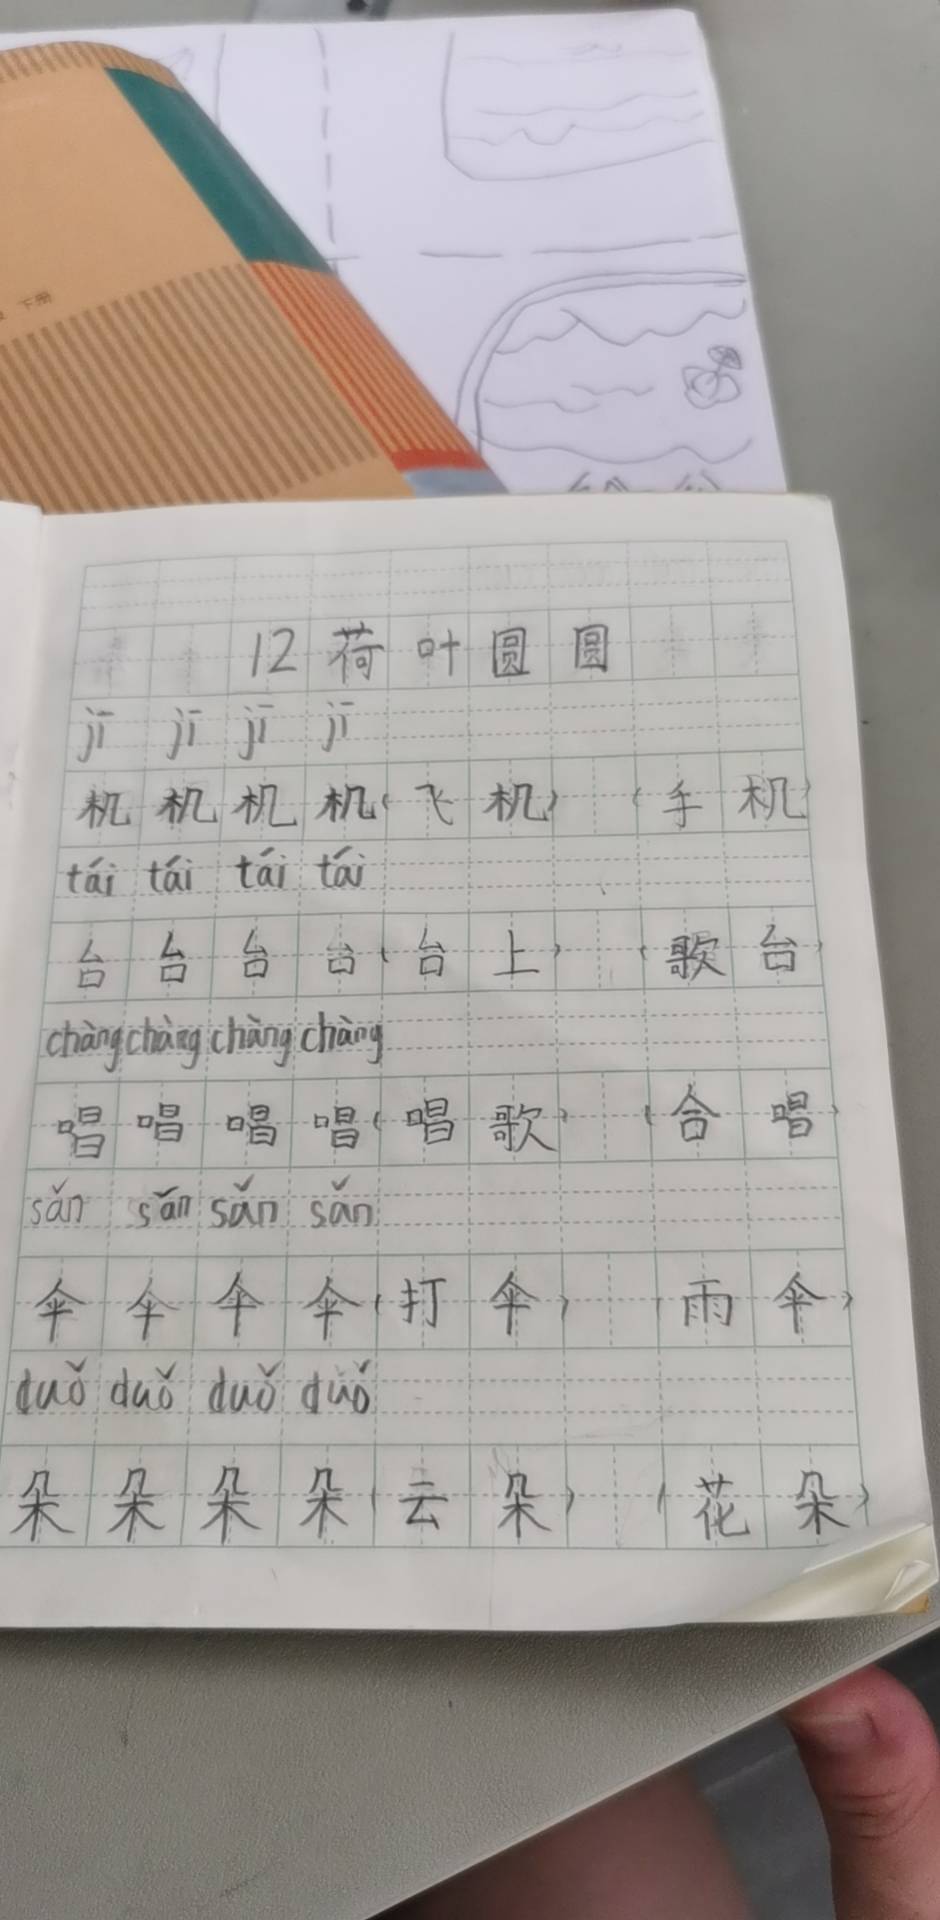 下册
12荷叶圆圆
jī jī jī jī
机机机机(飞机) (手机)
tái tái tái tái
台台台台(台上) (歌台)
chàng chàng chàng chàng
唱唱唱唱(唱歌) (合唱)
sǎn sǎn sǎn sǎn
伞伞伞伞(打伞) (雨伞)
duǒ duǒ duǒ duǒ
朵朵朵朵(云朵) (花朵)